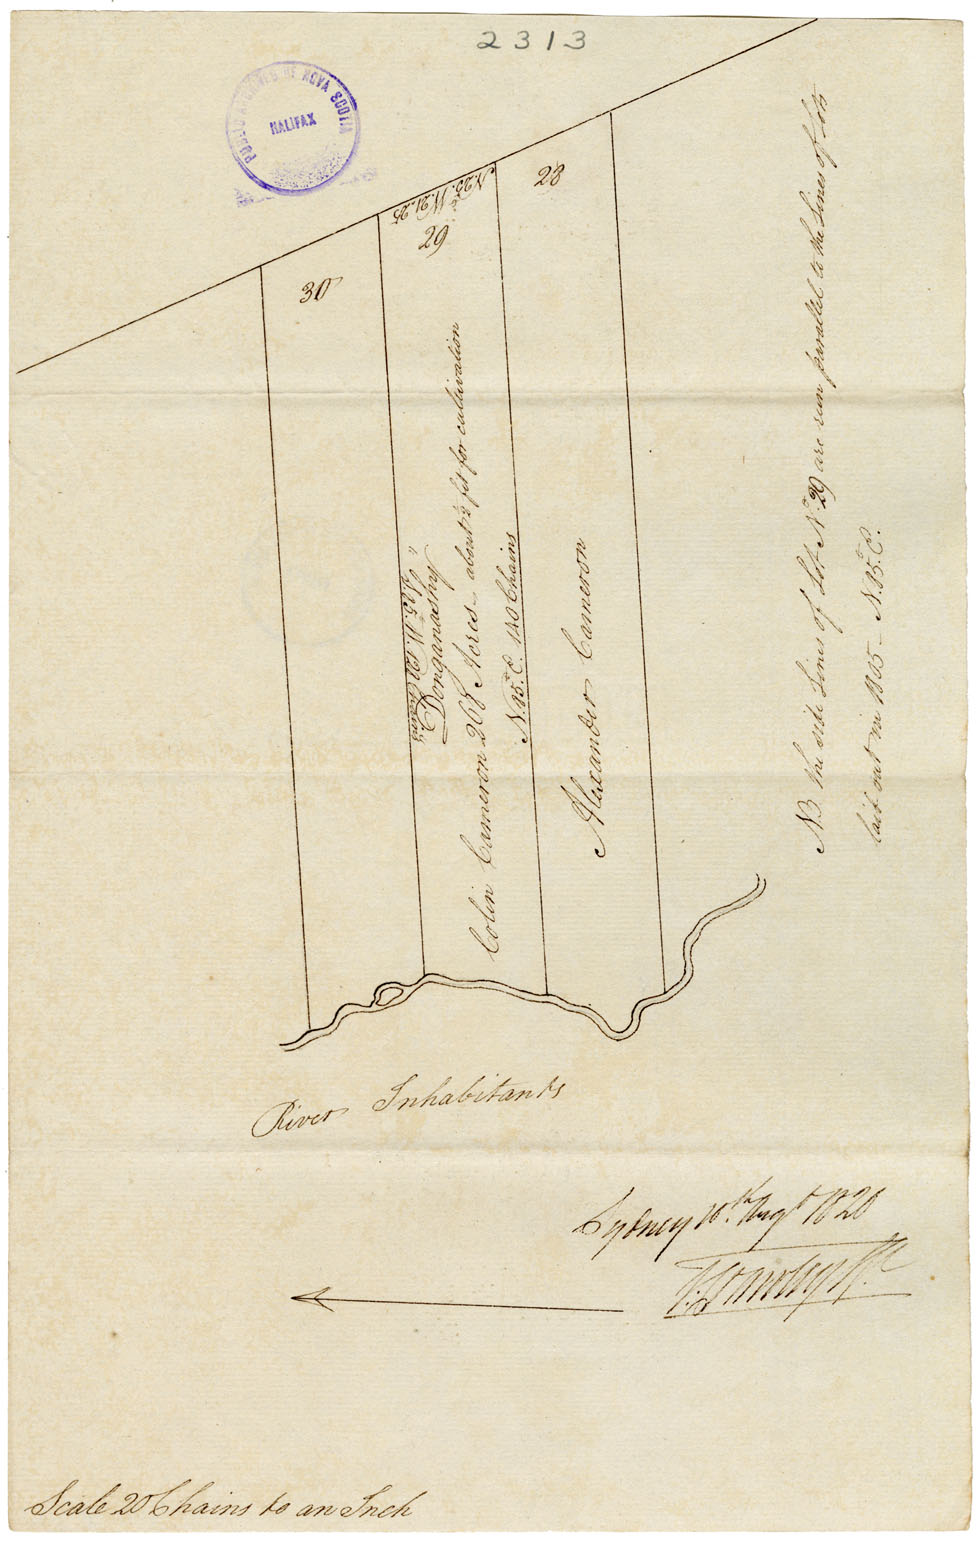 2313
PUBLIC ARCHIVES OF NOVA SCOTIA
HALIFAX
28
N.25.W.21.25
29
30
Donganashy
Colin Cameron 268 Acres - about ½ fit for cultivation
N.85°.E. 140 Chains
Alexander Cameron
NB the side lines of Lot No. 29 are run parallel to the lines of lots
laid out in 1805 - N.85°.E.
River Inhabitants
Sydney 10th Augt 1820
Scale 20 Chains to an Inch